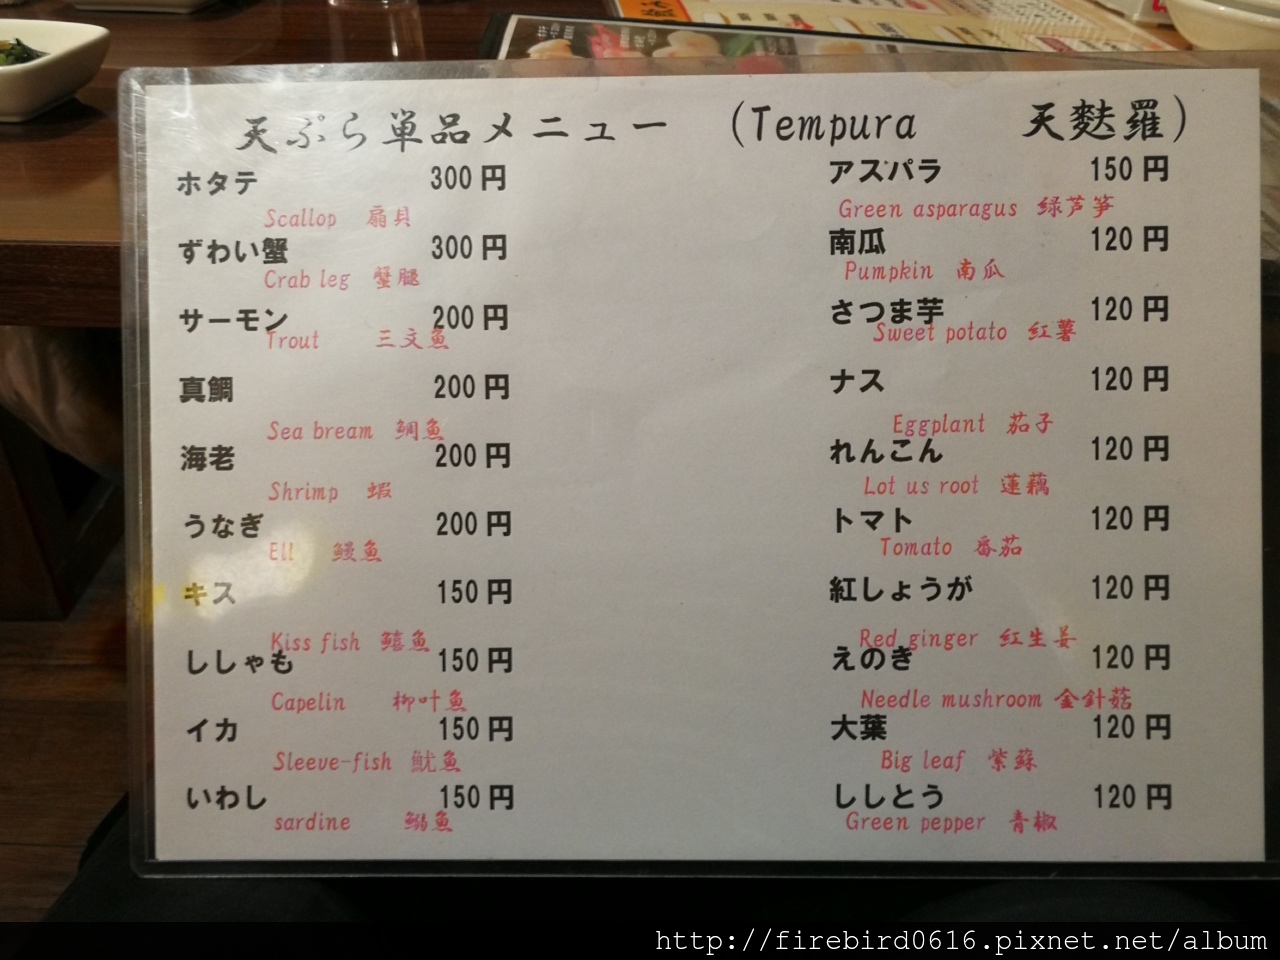 天ぷら単品メニュー (Tempura 天麩羅)
ホタテ 300円
Scallop 扇貝
ずわい蟹 300円
Crab leg 蟹腿
サーモン 200円
Trout 三文魚
真鯛 200円
Sea bream 鲷魚
海老 200円
Shrimp 蝦
うなぎ 200円
Ell 鳗魚
キス 150円
Kiss fish 鱚魚
ししゃも 150円
Capelin 柳叶魚
イカ 150円
Sleeve-fish 魷魚
いわし 150円
sardine 鰯魚
アスパラ 150円
Green asparagus 绿芦笋
南瓜 120円
Pumpkin 南瓜
さつま芋 120円
Sweet potato 红薯
ナス 120円
Eggplant 茄子
れんこん 120円
Lot us root 蓮藕
トマト 120円
Tomato 番茄
紅しょうが 120円
Red ginger 红生姜
えのき 120円
Needle mushroom 金針菇
大葉 120円
Big leaf 紫蘇
ししとう 120円
Green pepper 青椒
http://firebird0616.pixnet.net/album